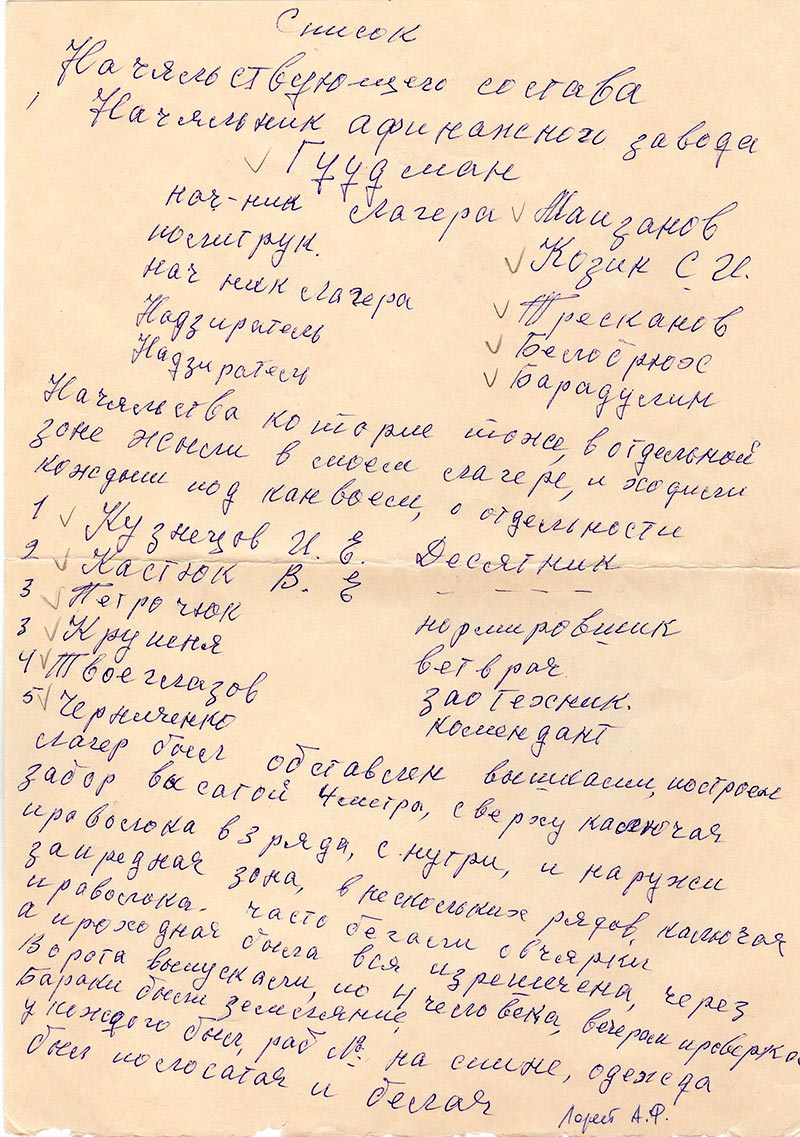 Список
Начяльствующего состава
Начяльник афинажного завода
Гуудман
нач-ник лагера Маизанов
политрук. Козик С И.
нач ник лагера Тресканов
Надзиратель Белобрюх
Надзиратель Барадулин
Начяльства которие тоже, в отдельной
зоне жыли в моем лагере, и ходили
кождыи под канвоем, о отдельности
1 Кузнецов И. Е. Десятник
2 Кастюк В. Е - - - - -
3 Петрочюк нормировшик
3 Крупеня ветврач
4 Твоеглазов заотехник.
5 Черниченко комендант
лагер был обставлен вышками, построен
забор высатой 4метра, сверху калючая
праволока в 3 ряда, с нутри, и наружи
запредная зона, в нескольких рядов, калючая
праволока. часто бегали овчярки
а проходная была вся изрешчена, через
Ворота выпускали, по 4 человека, вечером проверка
Бараки были земляние,
у кождого был, раб № на спине, одежда
был полосатая и белая
Лорей А.Ф.